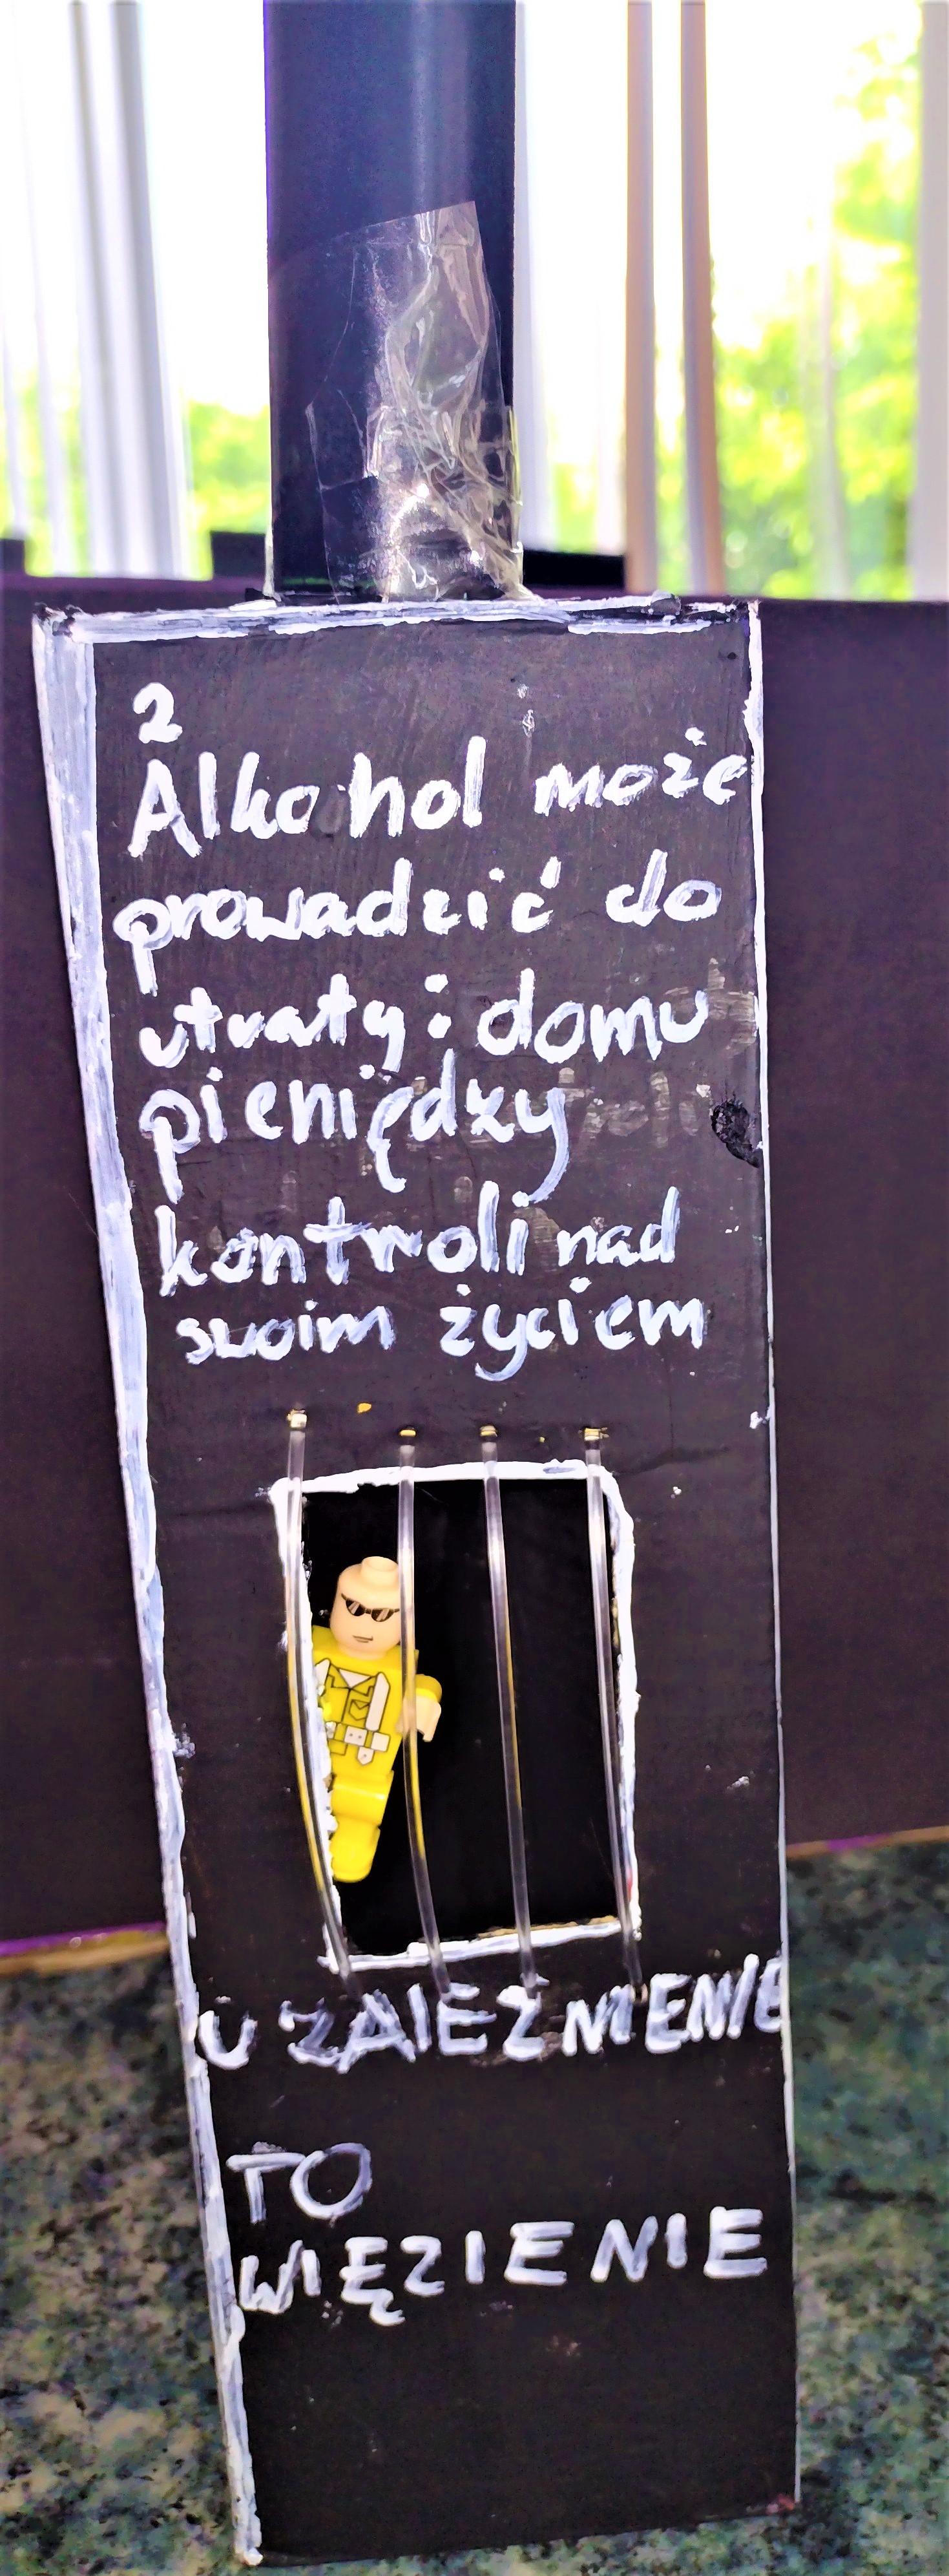 2
Alkohol może
prowadzić do
utraty: domu
pieniędzy
kontroli nad
swoim życiem
UZALEŻNIENIE
TO
WIĘZIENIE